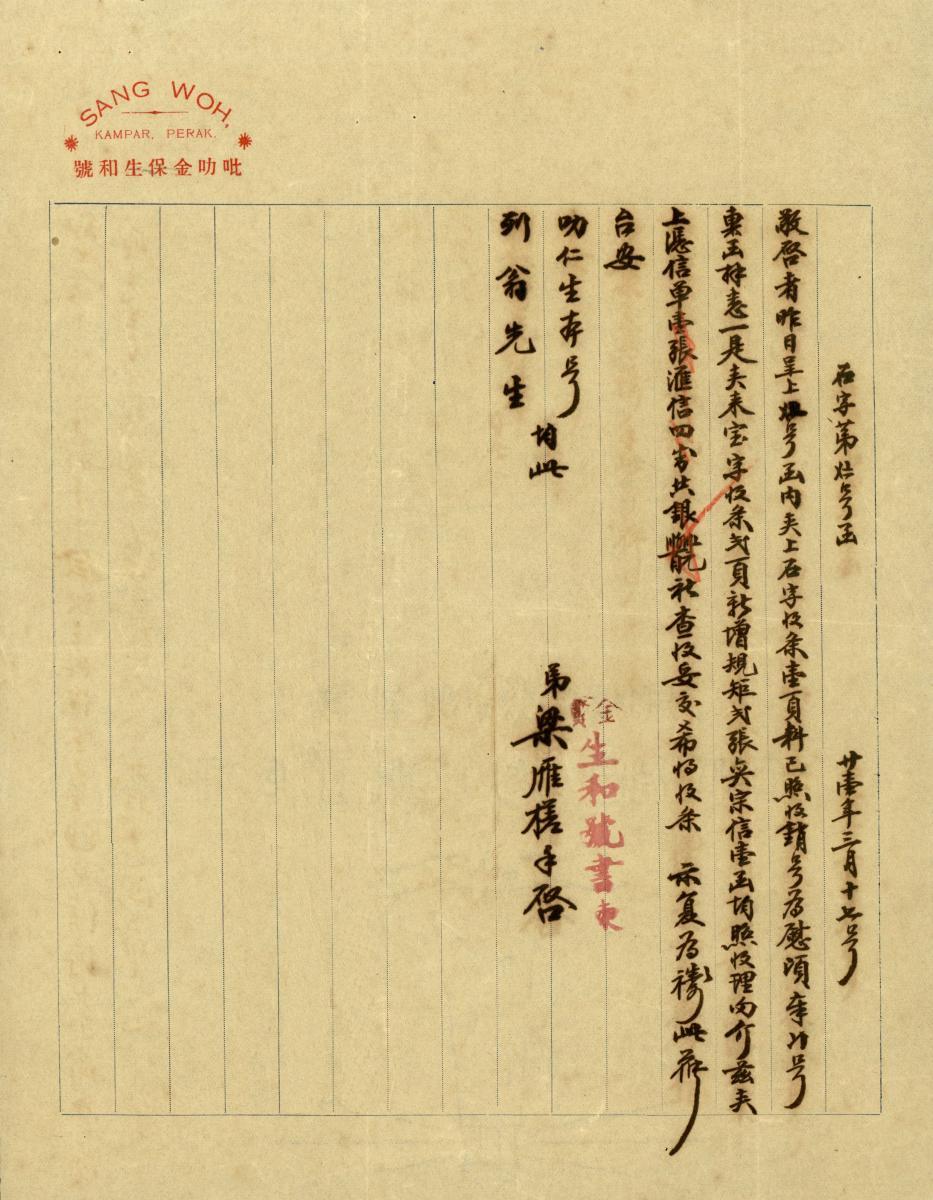 SANG WOH,
KAMPAR, PERAK.
號和生保金叻吡
石字第 号函 廿壹年三月十七号
敬啓者昨日呈上 号函内夹上石字收条壹頁料已照收銷号為慰頃奉 号
東函祥悉一是夹来宝字收条弍頁新增規矩弍張吳宗信壹函均照收理勿介茲夹
上憑信单壹張滙信四封共銀 祈查收妥交希将收条 示复為禱此荷
台安
叻仁生存号
列翁先生 均此
金寶生和號書柬
弟梁雁槎手啓